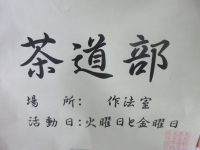 茶道部
場所: 作法室
活動日:火曜日と金曜日